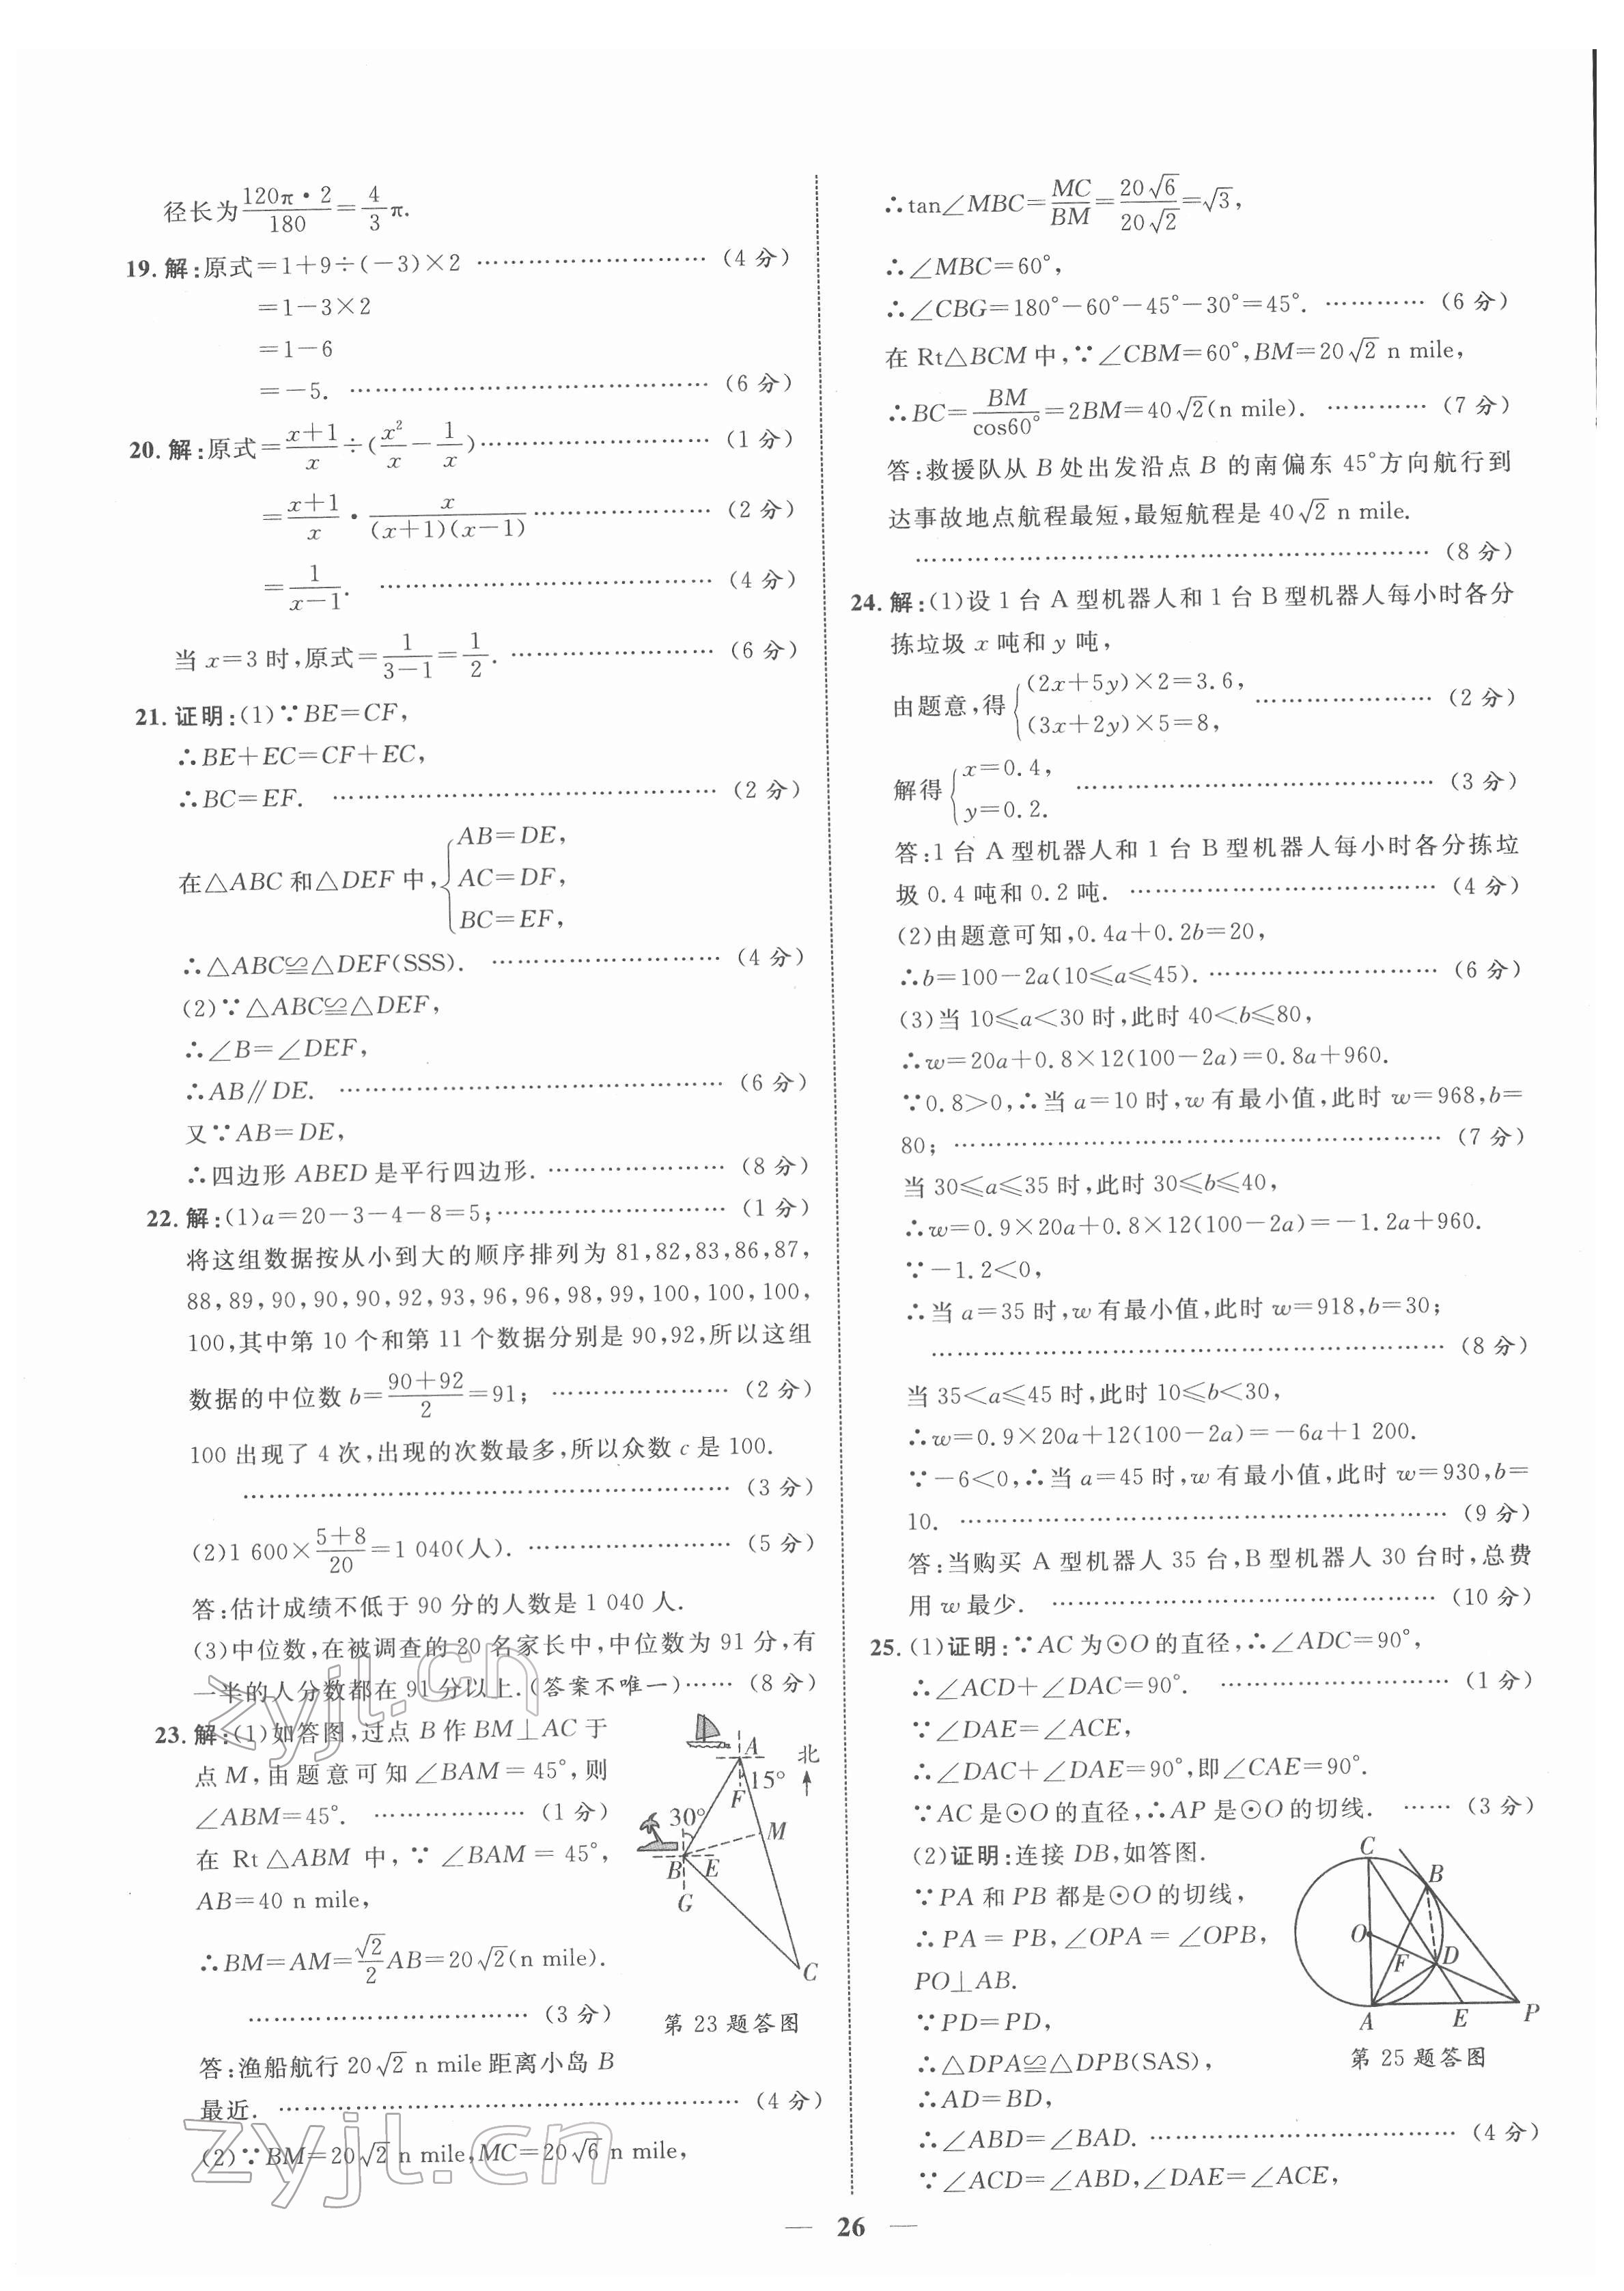 径长为120π·2/180=4/3π.
19. 解:原式=1+9÷(−3)×2 …………………………(4 分)
=1−3×2
=1−6
=−5. ……………………………………(6 分)
20. 解:原式=x+1/x÷(x²/x−1/x)………………………(1 分)
=x+1/x·x/(x+1)(x−1)…………………(2 分)
=1/x−1. …………………………………(4 分)
当 x=3 时,原式=1/3−1=1/2. ……………………(6 分)
21. 证明:(1)∵BE=CF,
∴BE+EC=CF+EC,
∴BC=EF. ………………………………………(2 分)
在△ABC 和△DEF 中,{AB=DE,
AC=DF,
BC=EF,
∴△ABC≌△DEF(SSS). ………………………(4 分)
(2)∵△ABC≌△DEF,
∴∠B=∠DEF,
∴AB∥DE. ………………………………………(6 分)
又∵AB=DE,
∴四边形 ABED 是平行四边形. …………………(8 分)
22. 解:(1)a=20−3−4−8=5;………………………(1 分)
将这组数据按从小到大的顺序排列为 81,82,83,86,87,
88,89,90,90,90,92,93,96,96,98,99,100,100,100,
100,其中第 10 个和第 11 个数据分别是 90,92,所以这组
数据的中位数 b=90+92/2=91; …………………(2 分)
100 出现了 4 次,出现的次数最多,所以众数 c 是 100.
…………………………………………………(3 分)
(2)1 600×5+8/20=1 040(人). ……………………(5 分)
答:估计成绩不低于 90 分的人数是 1 040 人.
(3)中位数,在被调查的 20 名家长中,中位数为 91 分,有
一半的人分数都在 91 分以上.(答案不唯一)……(8 分)
23. 解:(1)如答图,过点 B 作 BM⊥AC 于
点 M,由题意可知∠BAM=45°,则
∠ABM=45°. ………………(1 分)
在 Rt△ABM 中,∵∠BAM=45°,
AB=40 n mile,
∴BM=AM=√2/2AB=20√2(n mile).
……………………………(3 分)
A
北
15°
F
30°
M
B E
G
C
第 23 题答图
答:渔船航行 20√2 n mile距离小岛 B
最近. ………………………………………………(4 分)
(2)∵BM=20√2 n mile,MC=20√6 n mile,
∴tan∠MBC=MC/BM=20√6/20√2=√3,
∴∠MBC=60°,
∴∠CBG=180°−60°−45°−30°=45°. …………(6 分)
在 Rt△BCM 中,∵∠CBM=60°,BM=20√2 n mile,
∴BC=BM/cos60°=2BM=40√2(n mile). …………(7 分)
答:救援队从 B 处出发沿点 B 的南偏东 45°方向航行到
达事故地点航程最短,最短航程是 40√2 n mile.
……………………………………………………(8 分)
24. 解:(1)设 1 台 A 型机器人和 1 台 B 型机器人每小时各分
拣垃圾 x 吨和 y 吨,
由题意,得{(2x+5y)×2=3.6,
(3x+2y)×5=8, …………………(2 分)
解得{x=0.4,
y=0.2. ……………………………………(3 分)
答:1 台 A 型机器人和 1 台 B 型机器人每小时各分拣垃
圾 0.4 吨和 0.2 吨. ………………………………(4 分)
(2)由题意可知,0.4a+0.2b=20,
∴b=100−2a(10≤a≤45). ………………………(6 分)
(3)当 10≤a<30 时,此时 40<b≤80,
∴w=20a+0.8×12(100−2a)=0.8a+960.
∵0.8>0,∴当 a=10 时,w 有最小值,此时 w=968,b=
80; …………………………………………………(7 分)
当 30≤a≤35 时,此时 30≤b≤40,
∴w=0.9×20a+0.8×12(100−2a)=−1.2a+960.
∵−1.2<0,
∴当 a=35 时,w 有最小值,此时 w=918,b=30;
……………………………………………………(8 分)
当 35<a≤45 时,此时 10≤b<30,
∴w=0.9×20a+12(100−2a)=−6a+1 200.
∵−6<0,∴当 a=45 时,w 有最小值,此时 w=930,b=
10. …………………………………………………(9 分)
答:当购买 A 型机器人 35 台,B 型机器人 30 台时,总费
用 w 最少. ………………………………………(10 分)
25. (1)证明:∵AC 为⊙O 的直径,∴∠ADC=90°,
∴∠ACD+∠DAC=90°. ………………………(1 分)
∵∠DAE=∠ACE,
∴∠DAC+∠DAE=90°,即∠CAE=90°.
∵AC 是⊙O 的直径,∴AP 是⊙O 的切线. ……(3 分)
(2)证明:连接 DB,如答图.
∵PA 和 PB 都是⊙O 的切线,
∴PA=PB,∠OPA=∠OPB,
PO⊥AB.
∵PD=PD,
∴△DPA≌△DPB(SAS),
∴AD=BD,
∴∠ABD=∠BAD. ………………………………(4 分)
∵∠ACD=∠ABD,∠DAE=∠ACE,
C
B
O
F
D
A
E
P
第 25 题答图
zyjl.cn
zyjl.cn
— 26 —